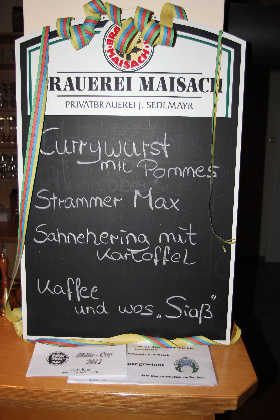 BRAUEREI
MAISACH
BRAUEREI MAISACH
PRIVATBRAUEREI J. SEDLMAYR
Currywurst
mit Pommes
Strammer Max
Sahnehering mit
Kartoffel
Kaffee
und wos „Siaß"
2012